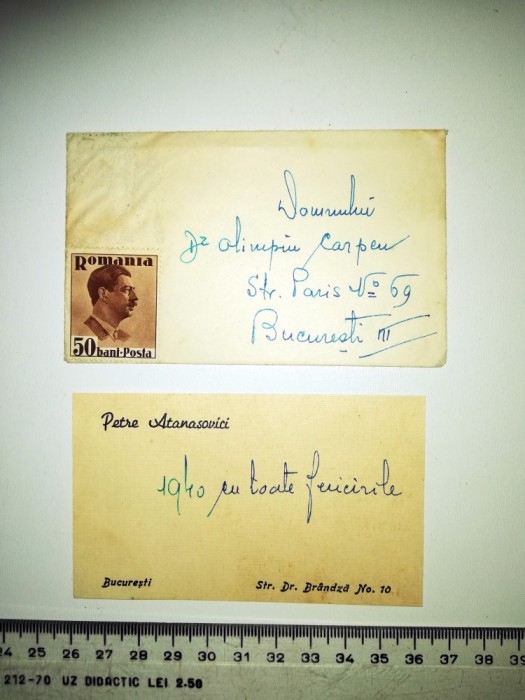 Domnului
Dr Olimpiu Carpen
Str. Paris No 69
București III
Romania
50 bani·Posta
Petre Atanasovici
1940 cu toate fericirile
București
Str. Dr. Brândză No. 10
24 25 26 27 28 29 30 31 32 33 34 35 36 37 38 39
212-70 UZ DIDACTIC LEI 2.50